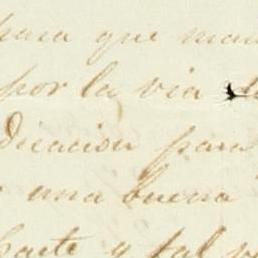 para que man
por la via
dicacion para
una buena
parte y tal